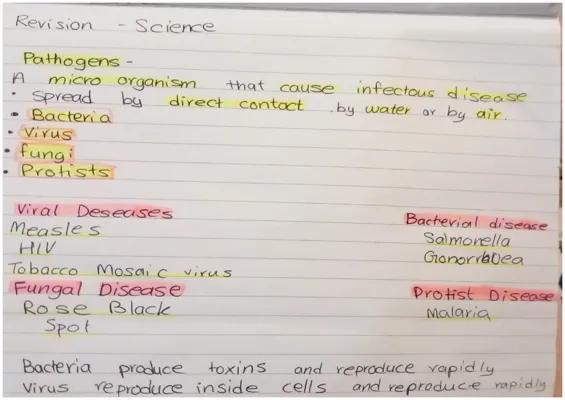 Revision - Science
Pathogens -
A micro organism that cause infectous disease
• Spread by direct contact .by water or by air.
• Bacteria
• Virus
• fungi
• Protists
Viral Deseases
Measles
HIV
Tobacco Mosaic virus
Fungal Disease
Rose Black
Spot
Bacterial disease
Salmonella
Gonorrhoea
Protist Disease
Malaria
Bacteria produce toxins and reproduce rapidly
Virus reproduce inside cells and reproduce rapidly